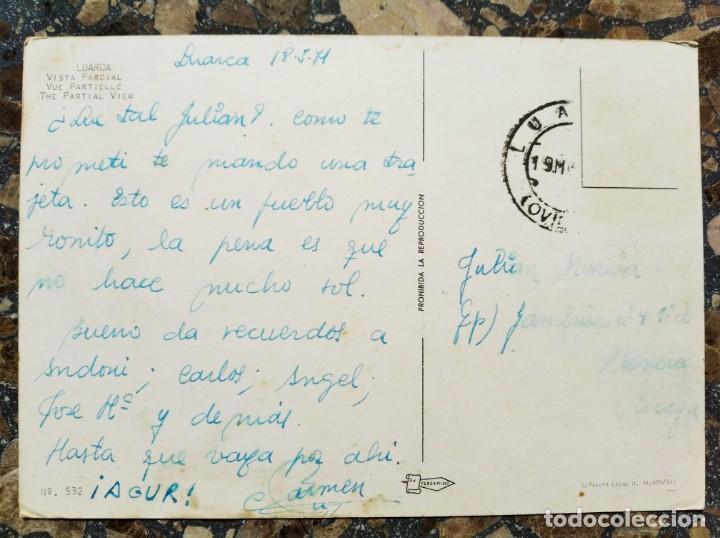 LUARCA
VISTA PARCIAL
VUE PARTIELLE
THE PARTIAL VIEW
Luarca 18-5-71
¿Que tal Julian?. como te
prometi te mando una tra
jeta. Esto es un pueblo muy
bonito, la pena es que
no hace mucho sol.
Bueno da recuerdos a
Andoni; Carlos; Angel;
Jose Mª y demás.
Hasta que vaya por ahi.
¡AGUR! Carmen
Nº. 532
PROHIBIDA LA REPRODUCCION
PERGAMINO
LUA
19 M
(OVI
Julian Murcia
nº 4 1º d
Plencia
Vizcaya
DEPOSITO LEGAL B.
todocoleccion.net